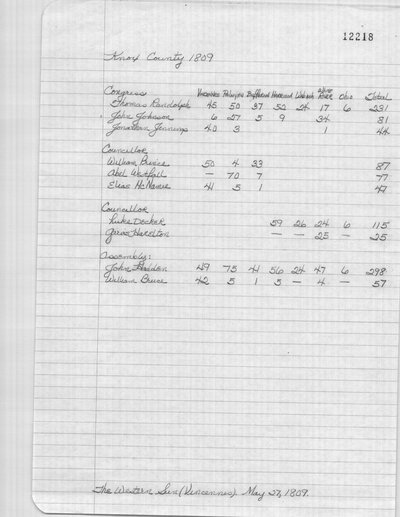 12218
Knox County 1809
Congress Vincennes Palmyra Busseron Harrison Wabash White River Ohio Total
Thomas Randolph 45 50 37 52 24 17 6 231
John Johnson 6 27 5 9 34 81
Jonathan Jennings 40 3 1 44
Councillor
William Bruce 50 4 33 87
Abel Westfall — 70 7 77
Elias McNamee 41 5 1 47
Councillor
Luke Decker 59 26 24 6 115
Hazelton — — 25 — 25
Assembly:
John Hadden 49 75 41 56 24 47 6 298
William Bruce 42 5 1 5 — 4 — 57
The Western Sun (Vincennes) May 27, 1809.